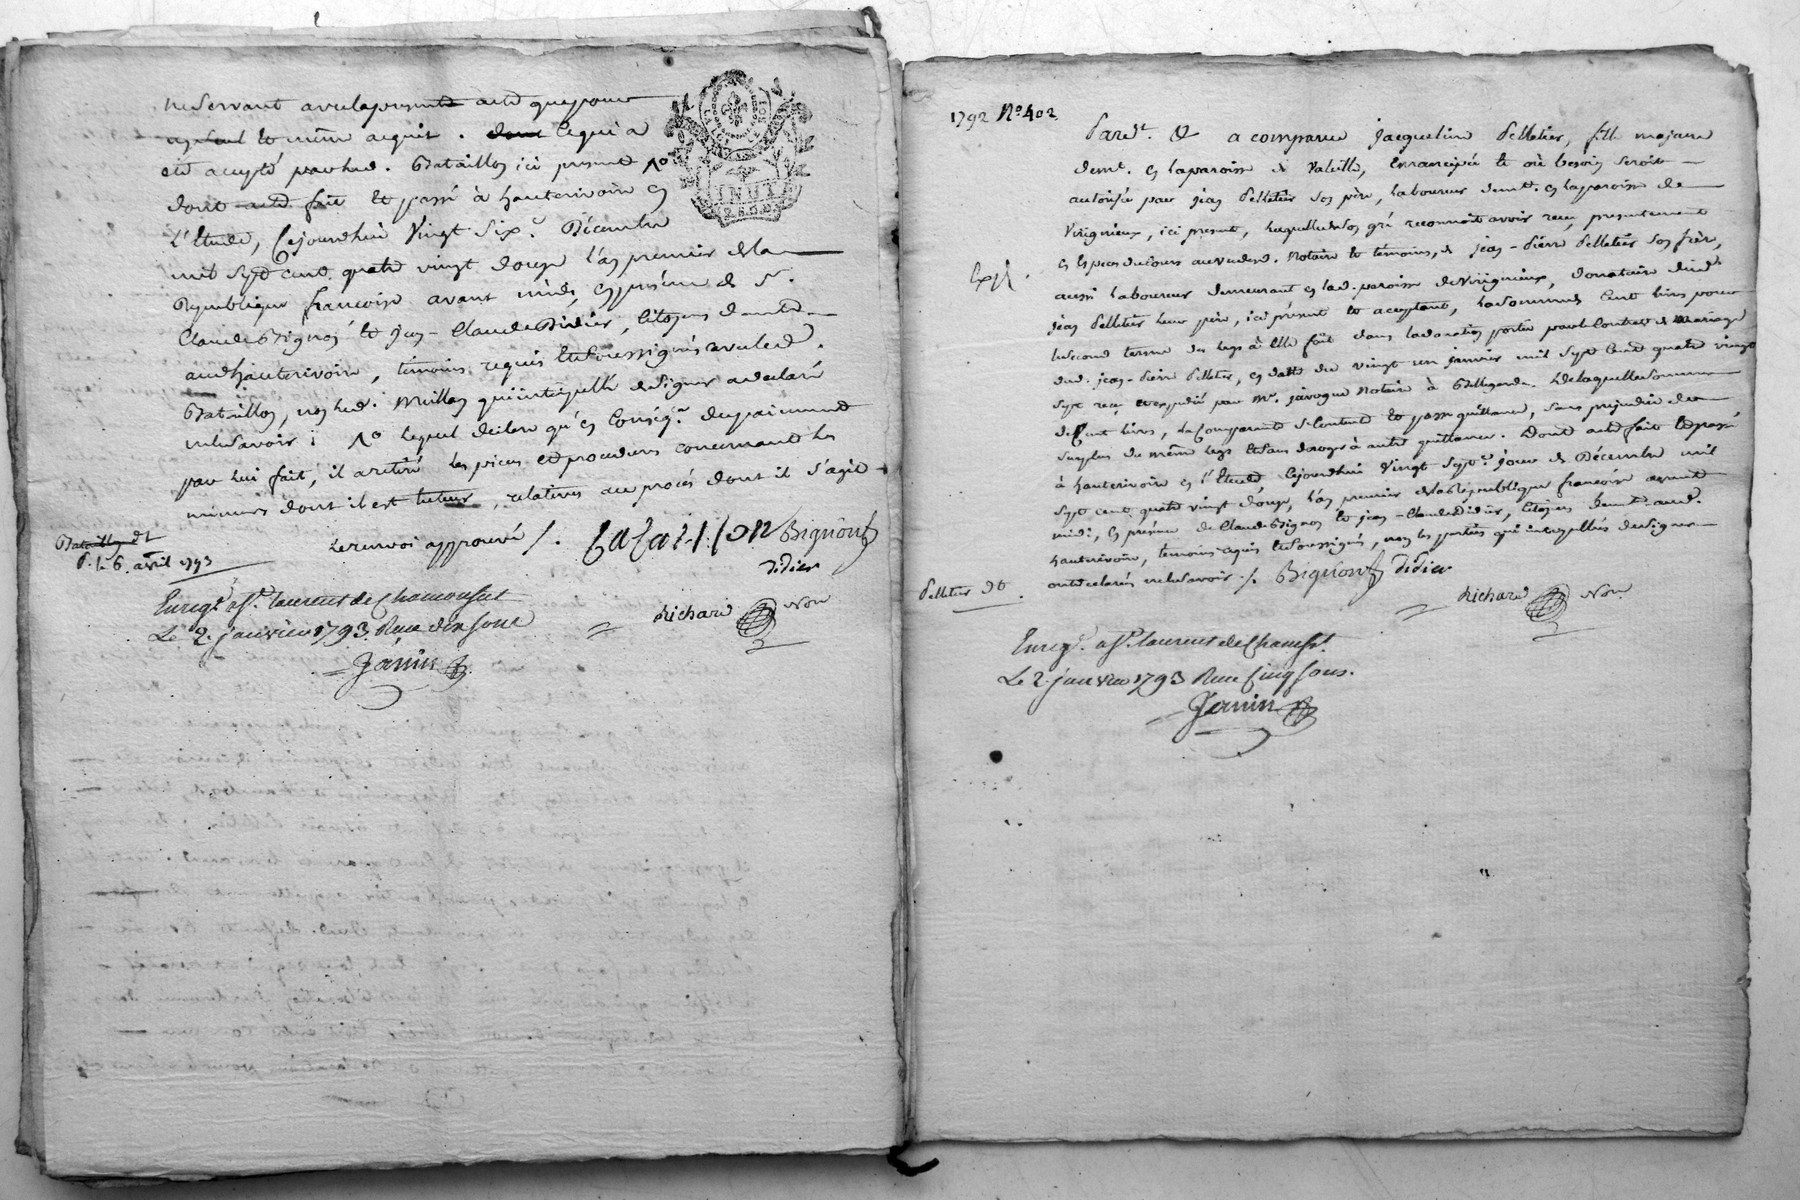 ne servant avec la presente acte que pour
le même acquit . lequi a
eté accepté par led. Batailly ici present
dont acte fait et passé à hauterivoire en
l'Etude, Cejourdhui vingt six.e Décembre
mil sept cent quatre vingt douze l'an premier de la
Republique francoise avant midi, en présence de S.r
Claude Bignon et jean-Claude Didier, Citoyens dem.t
aud hauterivoire, témoins requis et soussignés avec led.
Bataillon, non led. Muillon qui interpellé de signer a declaré
ne le savoir ; lequel declare qu'en conseq.ce du paiement
par lui fait, il a retiré les pieces et procedures concernant les
mineurs dont il est tuteur, relatives au procés dont il s'agit
le renvoi approuvé /. Batallion Bignon
didier
Bataillon dt
d. le 6. avril 1793
Enreg.é a S.t laurent de Chamousset
Le 2. janvier 1793 Reçu dix sous
Richard Nore
Janin
INUT
1792 N.o 402
Pard.t &. a comparue jacqueline Pelletier, fille majeure
demt. en la paroisse de Valeille, emancipée et où besoin seroit
autorisée par jean Pelletier son père, laboureur demt. en la paroisse de
Virigneux, ici present, laquelle de son gré reconnoit avoir reçu, presentement
en especes de cours au vu dud. Notaire et temoins, de jean-Pierre Pelletier son frère,
Exp.
aussi laboureur demeurant en lad. paroisse de Virigneux, donataire dud.
jean Pelletier leur père, ici présent et acceptant, la somme de Cent livres pour
le second terme des legs à elle fait dans la donation portée par le Contrat de Mariage
dud. jean-Pierre Pelletier, en datte du vingt un janvier mil sept cent quatre vingt
sept reçu et expedié par M.e javogue Notaire à Bellegarde. De laquelle somme
de Cent livres, la Comparante se contente et passe quittance, sans prejudice du
surplus du même legs et sans deroger à autre quittance. Dont acte fait et passé
à hauterivoire en l'Etude Cejourdhui Vingt sept.e jour de Décembre mil
sept cent quatre vingt douze, l'an premier de la Republique francoise avant
midi, en présence de Claude Bignon et jean-Claude Didier, Citoyens demt. aud.
hauterivoire, temoins requis et soussignés, non les parties qui interpellées de signer
ont declaré ne le savoir /. Bignon didier
Pelletier dt
Richard Nore
Enreg.é a S.t laurent de Chamouss.t
Le 2. janvier 1793 Reçu Cinq sous.
Janin